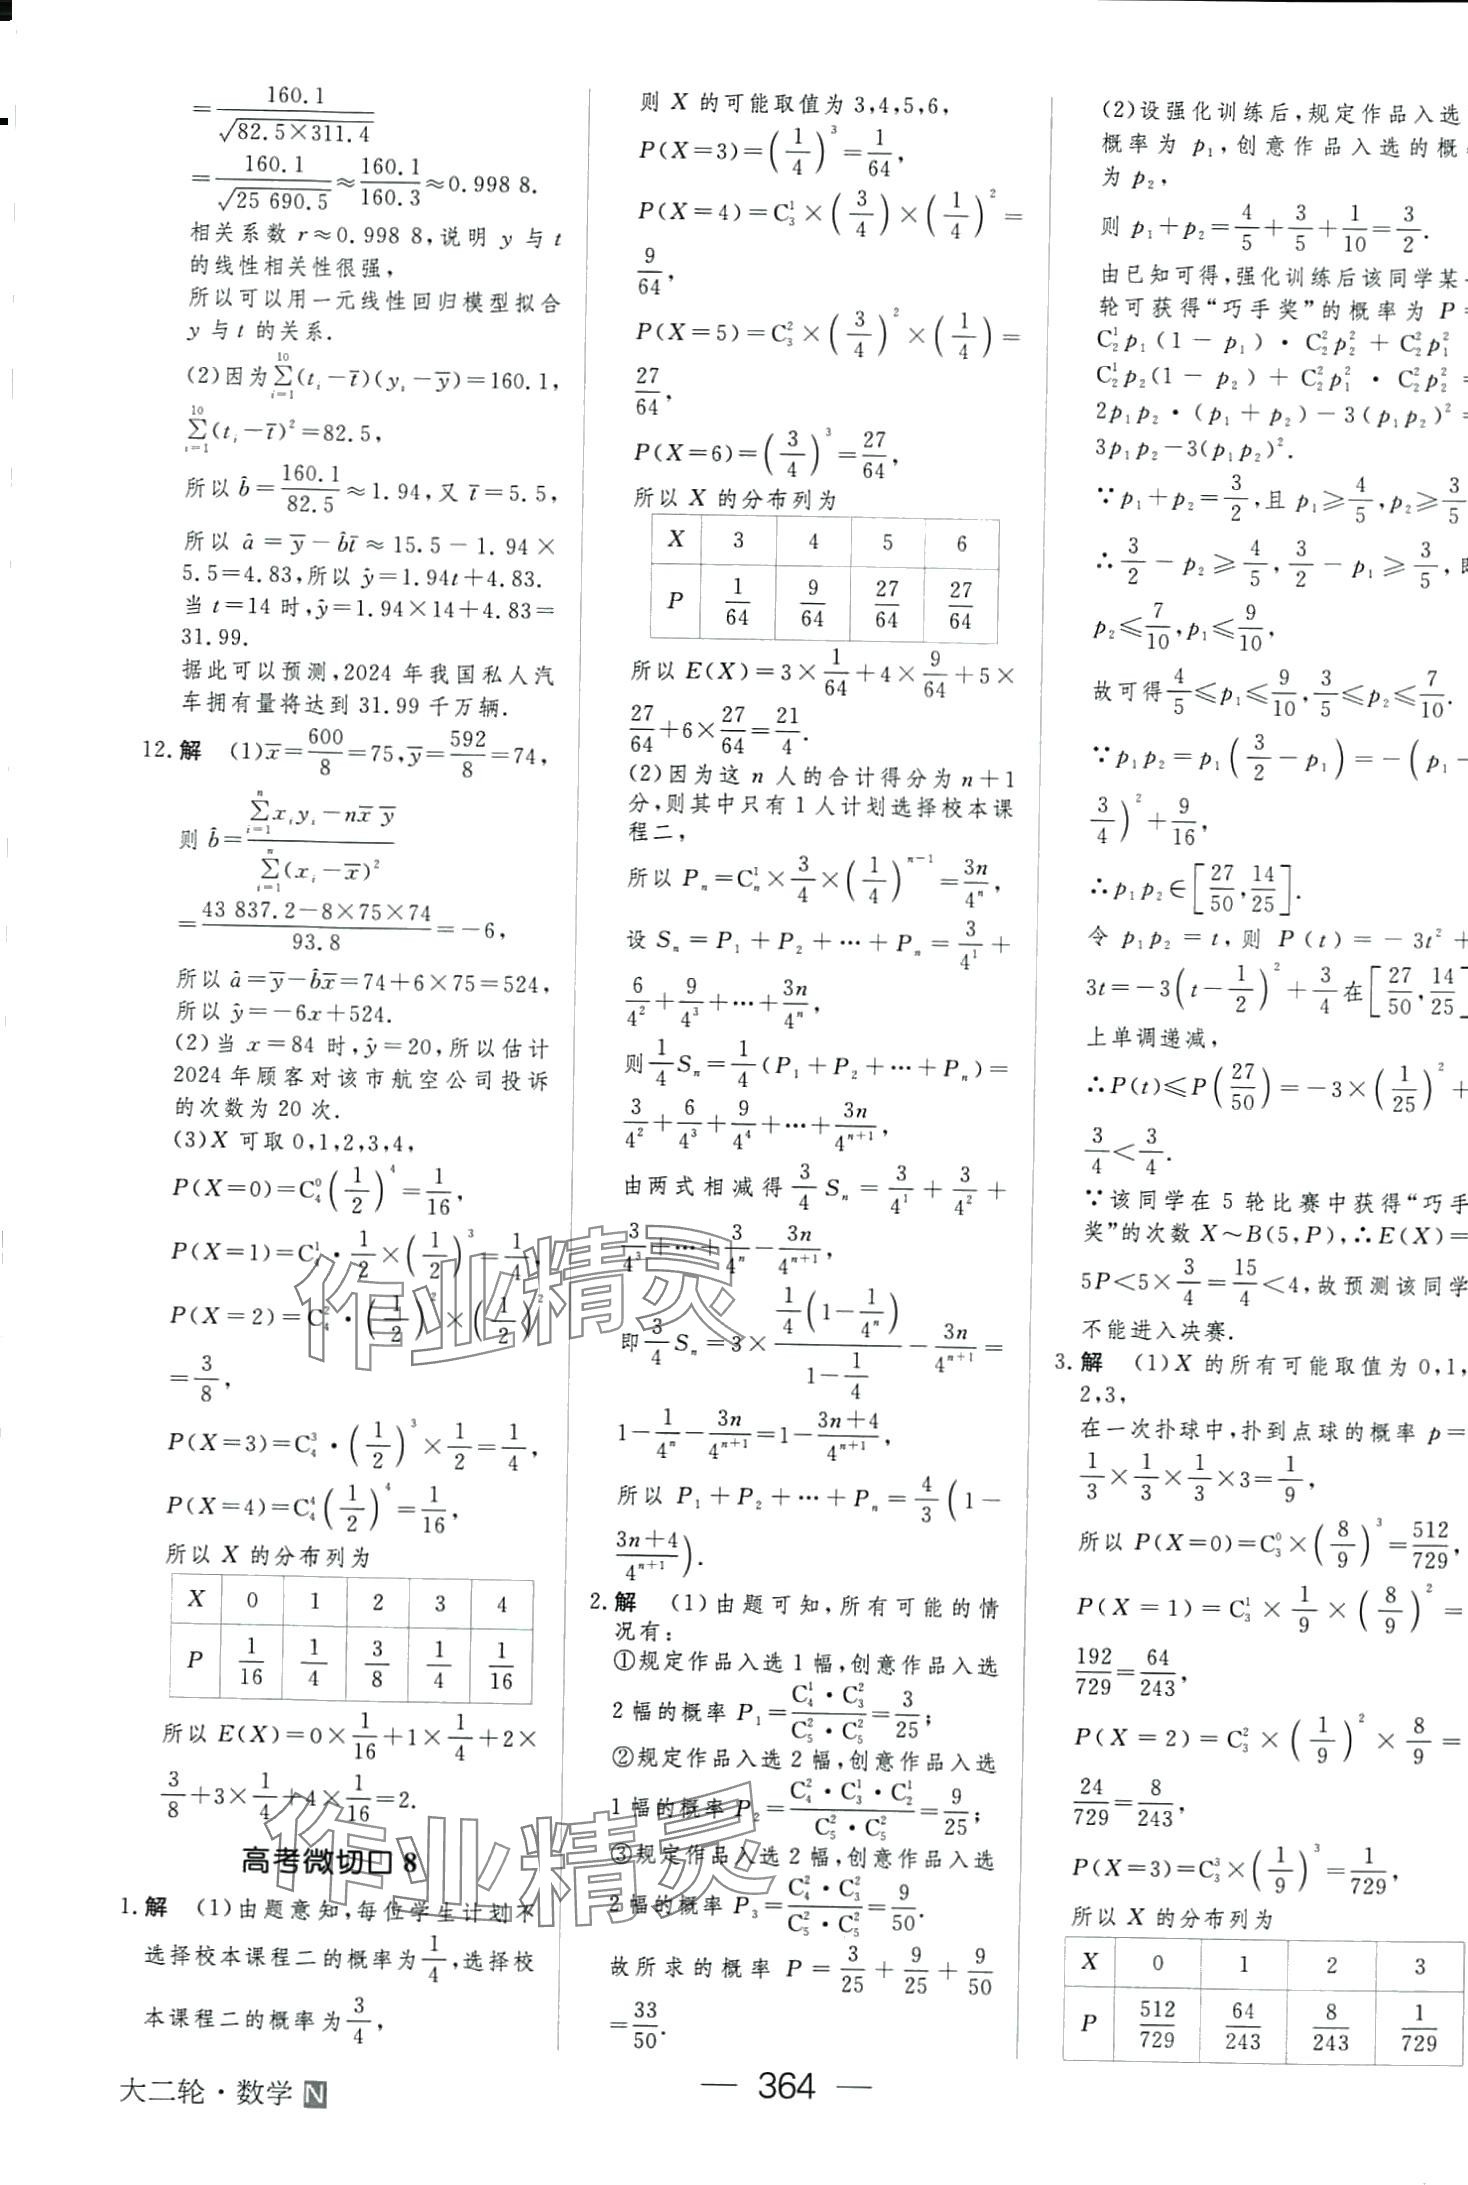 =\frac{160.1}{\sqrt{82.5×311.4}}
=\frac{160.1}{\sqrt{25 690.5}}≈\frac{160.1}{160.3}≈0.998 8.
相关系数 r≈0.998 8,说明 y 与 t
的线性相关性很强,
所以可以用一元线性回归模型拟合
y 与 t 的关系.
(2)因为\sum_{i=1}^{10}(t_i-\bar{t})(y_i-\bar{y})=160.1,
\sum_{i=1}^{10}(t_i-\bar{t})^2=82.5,
所以\hat{b}=\frac{160.1}{82.5}≈1.94,又\bar{t}=5.5,
所以 \hat{a}=\bar{y}-\hat{b}\bar{t}≈15.5-1.94×
5.5=4.83,所以 \hat{y}=1.94t+4.83.
当 t=14 时,\hat{y}=1.94×14+4.83=
31.99.
据此可以预测,2024 年我国私人汽
车拥有量将达到 31.99 千万辆.
12.解 (1)\bar{x}=\frac{600}{8}=75,\bar{y}=\frac{592}{8}=74,
则 \hat{b}=\frac{\sum_{i=1}^{n}x_iy_i-n\bar{x}\bar{y}}{\sum_{i=1}^{n}(x_i-\bar{x})^2}
=\frac{43 837.2-8×75×74}{93.8}=-6,
所以 \hat{a}=\bar{y}-\hat{b}\bar{x}=74+6×75=524,
所以 \hat{y}=-6x+524.
(2)当 x=84 时,\hat{y}=20,所以估计
2024年顾客对该市航空公司投诉
的次数为 20 次.
(3)X 可取 0,1,2,3,4,
P(X=0)=C_4^0(\frac{1}{2})^4=\frac{1}{16},
P(X=1)=C_4^1·\frac{1}{2}×(\frac{1}{2})^3=\frac{1}{4},
P(X=2)=C_4^2·(\frac{1}{2})^2×(\frac{1}{2})^2
=\frac{3}{8},
P(X=3)=C_4^3·(\frac{1}{2})^3×\frac{1}{2}=\frac{1}{4},
P(X=4)=C_4^4(\frac{1}{2})^4=\frac{1}{16},
所以 X 的分布列为
X 0 1 2 3 4
P \frac{1}{16} \frac{1}{4} \frac{3}{8} \frac{1}{4} \frac{1}{16}
所以 E(X)=0×\frac{1}{16}+1×\frac{1}{4}+2×
\frac{3}{8}+3×\frac{1}{4}+4×\frac{1}{16}=2.
高考微切口 8
1.解 (1)由题意知,每位学生计划不
选择校本课程二的概率为\frac{1}{4},选择校
本课程二的概率为\frac{3}{4},
则 X 的可能取值为 3,4,5,6,
P(X=3)=(\frac{1}{4})^3=\frac{1}{64},
P(X=4)=C_3^1×(\frac{3}{4})×(\frac{1}{4})^2=
\frac{9}{64},
P(X=5)=C_3^2×(\frac{3}{4})^2×(\frac{1}{4})=
\frac{27}{64},
P(X=6)=(\frac{3}{4})^3=\frac{27}{64},
所以 X 的分布列为
X 3 4 5 6
P \frac{1}{64} \frac{9}{64} \frac{27}{64} \frac{27}{64}
所以 E(X)=3×\frac{1}{64}+4×\frac{9}{64}+5×
\frac{27}{64}+6×\frac{27}{64}=\frac{21}{4}.
(2)因为这 n 人的合计得分为 n+1
分,则其中只有 1 人计划选择校本课
程二,
所以 P_n=C_n^1×\frac{3}{4}×(\frac{1}{4})^{n-1}=\frac{3n}{4^n},
设 S_n=P_1+P_2+…+P_n=\frac{3}{4^1}+
\frac{6}{4^2}+\frac{9}{4^3}+…+\frac{3n}{4^n},
则\frac{1}{4}S_n=\frac{1}{4}(P_1+P_2+…+P_n)=
\frac{3}{4^2}+\frac{6}{4^3}+\frac{9}{4^4}+…+\frac{3n}{4^{n+1}},
由两式相减得\frac{3}{4}S_n=\frac{3}{4^1}+\frac{3}{4^2}+
\frac{3}{4^3}+…+\frac{3}{4^n}-\frac{3n}{4^{n+1}},
即\frac{3}{4}S_n=3×\frac{\frac{1}{4}(1-\frac{1}{4^n})}{1-\frac{1}{4}}-\frac{3n}{4^{n+1}}=
1-\frac{1}{4^n}-\frac{3n}{4^{n+1}}=1-\frac{3n+4}{4^{n+1}},
所以 P_1+P_2+…+P_n=\frac{4}{3}(1-
\frac{3n+4}{4^{n+1}}).
2.解 (1)由题可知,所有可能的情
况有:
①规定作品入选 1 幅,创意作品入选
2幅的概率 P_1=\frac{C_4^1·C_3^2}{C_5^2·C_5^2}=\frac{3}{25};
②规定作品入选 2 幅,创意作品入选
1幅的概率 P_2=\frac{C_4^2·C_3^1·C_2^1}{C_5^2·C_5^2}=\frac{9}{25};
③规定作品入选 2 幅,创意作品入选
2幅的概率 P_3=\frac{C_4^2·C_3^2}{C_5^2·C_5^2}=\frac{9}{50}.
故所求的概率 P=\frac{3}{25}+\frac{9}{25}+\frac{9}{50}
=\frac{33}{50}.
(2)设强化训练后,规定作品入选
概率为 p_1,创意作品入选的概
为 p_2,
则 p_1+p_2=\frac{4}{5}+\frac{3}{5}+\frac{1}{10}=\frac{3}{2}.
由已知可得,强化训练后该同学某
轮可获得“巧手奖”的概率为 P=
C_2^1p_1(1-p_1)·C_2^2p_2^2+C_2^2p_1^2
C_2^1p_2(1-p_2)+C_2^2p_1^2·C_2^2p_2^2=
2p_1p_2·(p_1+p_2)-3(p_1p_2)^2=
3p_1p_2-3(p_1p_2)^2.
∵p_1+p_2=\frac{3}{2},且 p_1≥\frac{4}{5},p_2≥\frac{3}{5}
∴\frac{3}{2}-p_2≥\frac{4}{5},\frac{3}{2}-p_1≥\frac{3}{5},即
p_2≤\frac{7}{10},p_1≤\frac{9}{10},
故可得\frac{4}{5}≤p_1≤\frac{9}{10},\frac{3}{5}≤p_2≤\frac{7}{10}.
∵p_1p_2=p_1(\frac{3}{2}-p_1)=-(p_1-
\frac{3}{4})^2+\frac{9}{16},
∴p_1p_2∈[\frac{27}{50},\frac{14}{25}].
令 p_1p_2=t,则 P(t)=-3t^2+
3t=-3(t-\frac{1}{2})^2+\frac{3}{4}在[\frac{27}{50},\frac{14}{25}]
上单调递减,
∴P(t)≤P(\frac{27}{50})=-3×(\frac{1}{25})^2+
\frac{3}{4}<\frac{3}{4}.
∵该同学在 5 轮比赛中获得“巧手
奖”的次数 X~B(5,P),∴E(X)=
5P<5×\frac{3}{4}=\frac{15}{4}<4,故预测该同学
不能进入决赛.
3.解 (1)X 的所有可能取值为 0,1,
2,3,
在一次扑球中,扑到点球的概率 p=
\frac{1}{3}×\frac{1}{3}×\frac{1}{3}×3=\frac{1}{9},
所以 P(X=0)=C_3^0×(\frac{8}{9})^3=\frac{512}{729},
P(X=1)=C_3^1×\frac{1}{9}×(\frac{8}{9})^2=
\frac{192}{729}=\frac{64}{243},
P(X=2)=C_3^2×(\frac{1}{9})^2×\frac{8}{9}=
\frac{24}{729}=\frac{8}{243},
P(X=3)=C_3^3×(\frac{1}{9})^3=\frac{1}{729},
所以 X 的分布列为
X 0 1 2 3
P \frac{512}{729} \frac{64}{243} \frac{8}{243} \frac{1}{729}
作业精灵
作业精灵
大二轮·数学 N
— 364 —